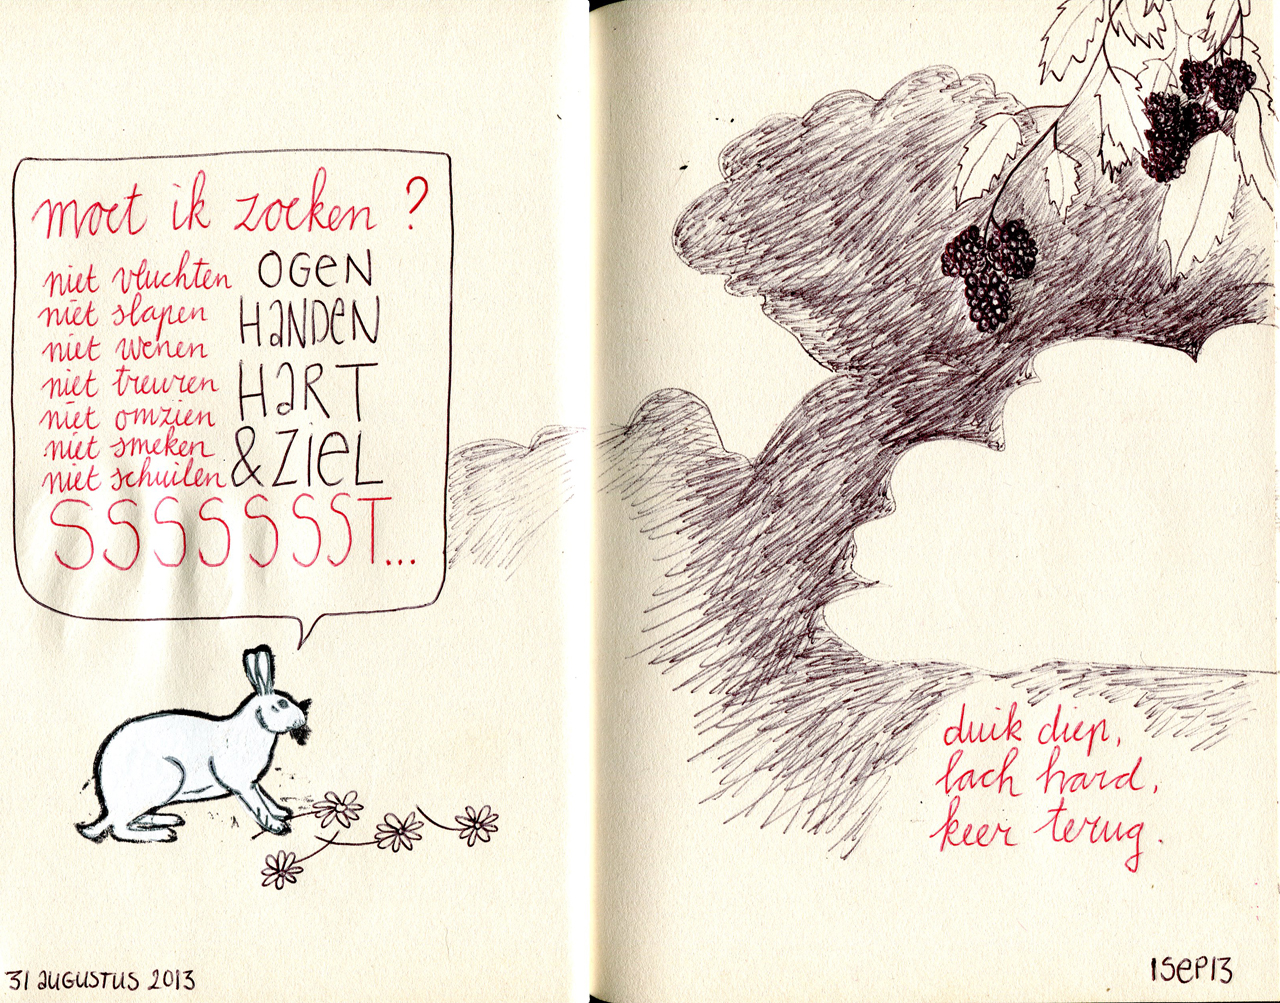 moet ik zoeken ?
niet vluchten
niet slapen
niet wenen
niet treuren
niet omzien
niet smeken
niet schuilen
OGEN
HANDEN
HART
& ZIEL
SSSSSSST...
31 AUGUSTUS 2013
duik diep,
lach hard,
keer terug.
1SEP13